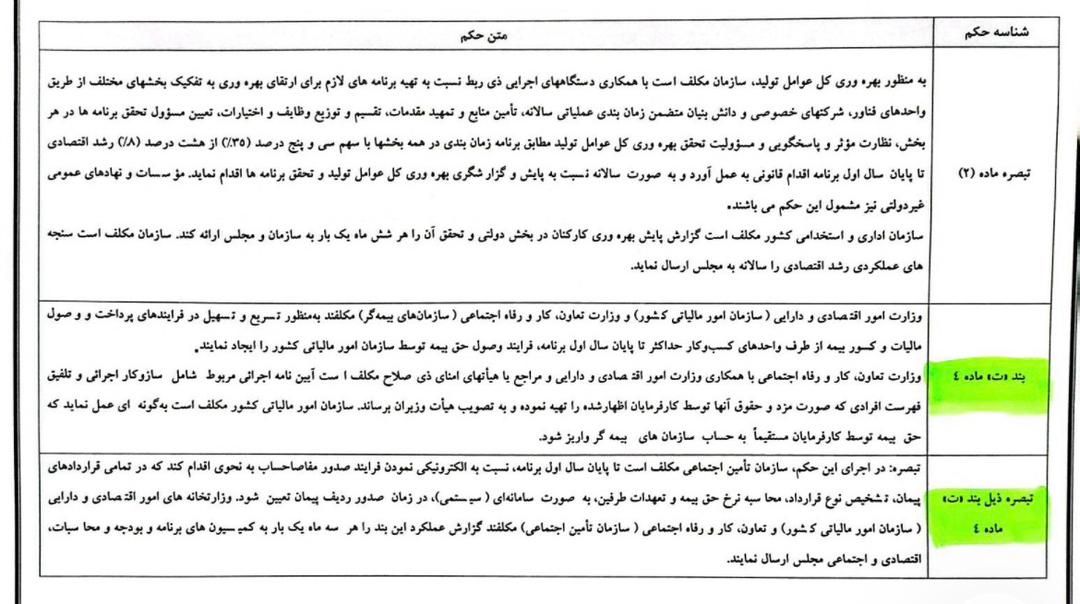 شناسه حکم
متن حکم
تبصره ماده (۲)
به منظور بهره وری کل عوامل تولید، سازمان مکلف است با همکاری دستگاههای اجرایی ذی ربط نسبت به تهیه برنامه های لازم برای ارتقای بهره وری به تفکیک بخشهای مختلف از طریق
واحدهای فناور، شرکتهای خصوصی و دانش بنیان متضمن زمان بندی عملیاتی سالانه، تأمین منابع و تمهید مقدمات، تقسیم و توزیع وظایف و اختیارات، تعیین مسؤول تحقق برنامه ها در هر
بخش، نظارت مؤثر و پاسخگویی و مسؤولیت تحقق بهره وری کل عوامل تولید مطابق برنامه زمان بندی در همه بخشها با سهم سی و پنج درصد (۳۵٪) از هشت درصد (۸٪) رشد اقتصادی
تا پایان سال اول برنامه اقدام قانونی به عمل آورد و به صورت سالانه نسبت به پایش و گزار شگری بهره وری کل عوامل تولید و تحقق برنامه ها اقدام نماید. مؤ سسات و نهادهای عمومی
غیردولتی نیز مشمول این حکم می باشند.
سازمان اداری و استخدامی کشور مکلف است گزارش پایش بهره وری کارکنان در بخش دولتی و تحقق آن را هر شش ماه یک بار به سازمان و مجلس ارائه کند. سازمان مکلف است سنجه
های عملکردی رشد اقتصادی را سالانه به مجلس ارسال نماید.
بند «ت» ماده ٤
وزارت امور اقتصادی و دارایی ( سازمان امور مالیاتی کشور) و وزارت تعاون، کار و رفاه اجتماعی ( سازمان‌های بیمه‌گر) مکلفند به‌منظور تسریع و تسهیل در فرایندهای پرداخت و و صول
مالیات و کسور بیمه از طرف واحدهای کسب‌وکار حداکثر تا پایان سال اول برنامه، فرایند وصول حق بیمه توسط سازمان امور مالیاتی کشور را ایجاد نمایند.
وزارت تعاون، کار و رفاه اجتماعی با همکاری وزارت امور اقتصادی و دارایی و مراجع یا هیأتهای امنای ذی صلاح مکلف ا ست آیین نامه اجرائی مربوط شامل سازوکار اجرائی و تلفیق
فهرست افرادی که صورت مزد و حقوق آنها توسط کارفرمایان اظهارشده را تهیه نموده و به تصویب هیأت وزیران برساند. سازمان امور مالیاتی کشور مکلف است به‌گونه ای عمل نماید که
حق بیمه توسط کارفرمایان مستقیماً به حساب سازمان های بیمه گر واریز شود.
تبصره ذیل بند «ت»
ماده ٤
تبصره: در اجرای این حکم، سازمان تأمین اجتماعی مکلف است تا پایان سال اول برنامه، نسبت به الکترونیکی نمودن فرایند صدور مفاصاحساب به نحوی اقدام کند که در تمامی قراردادهای
پیمان، تشخیص نوع قرارداد، محا سبه نرخ حق بیمه و تعهدات طرفین، به صورت سامانه‌ای ( سیستمی)، در زمان صدور ردیف پیمان تعیین شود. وزارتخانه های امور اقتصادی و دارایی
( سازمان امور مالیاتی کشور) و تعاون، کار و رفاه اجتماعی ( سازمان تأمین اجتماعی) مکلفند گزارش عملکرد این بند را هر سه ماه یک بار به کمیسیون های برنامه و بودجه و محا سبات،
اقتصادی و اجتماعی مجلس ارسال نمایند.